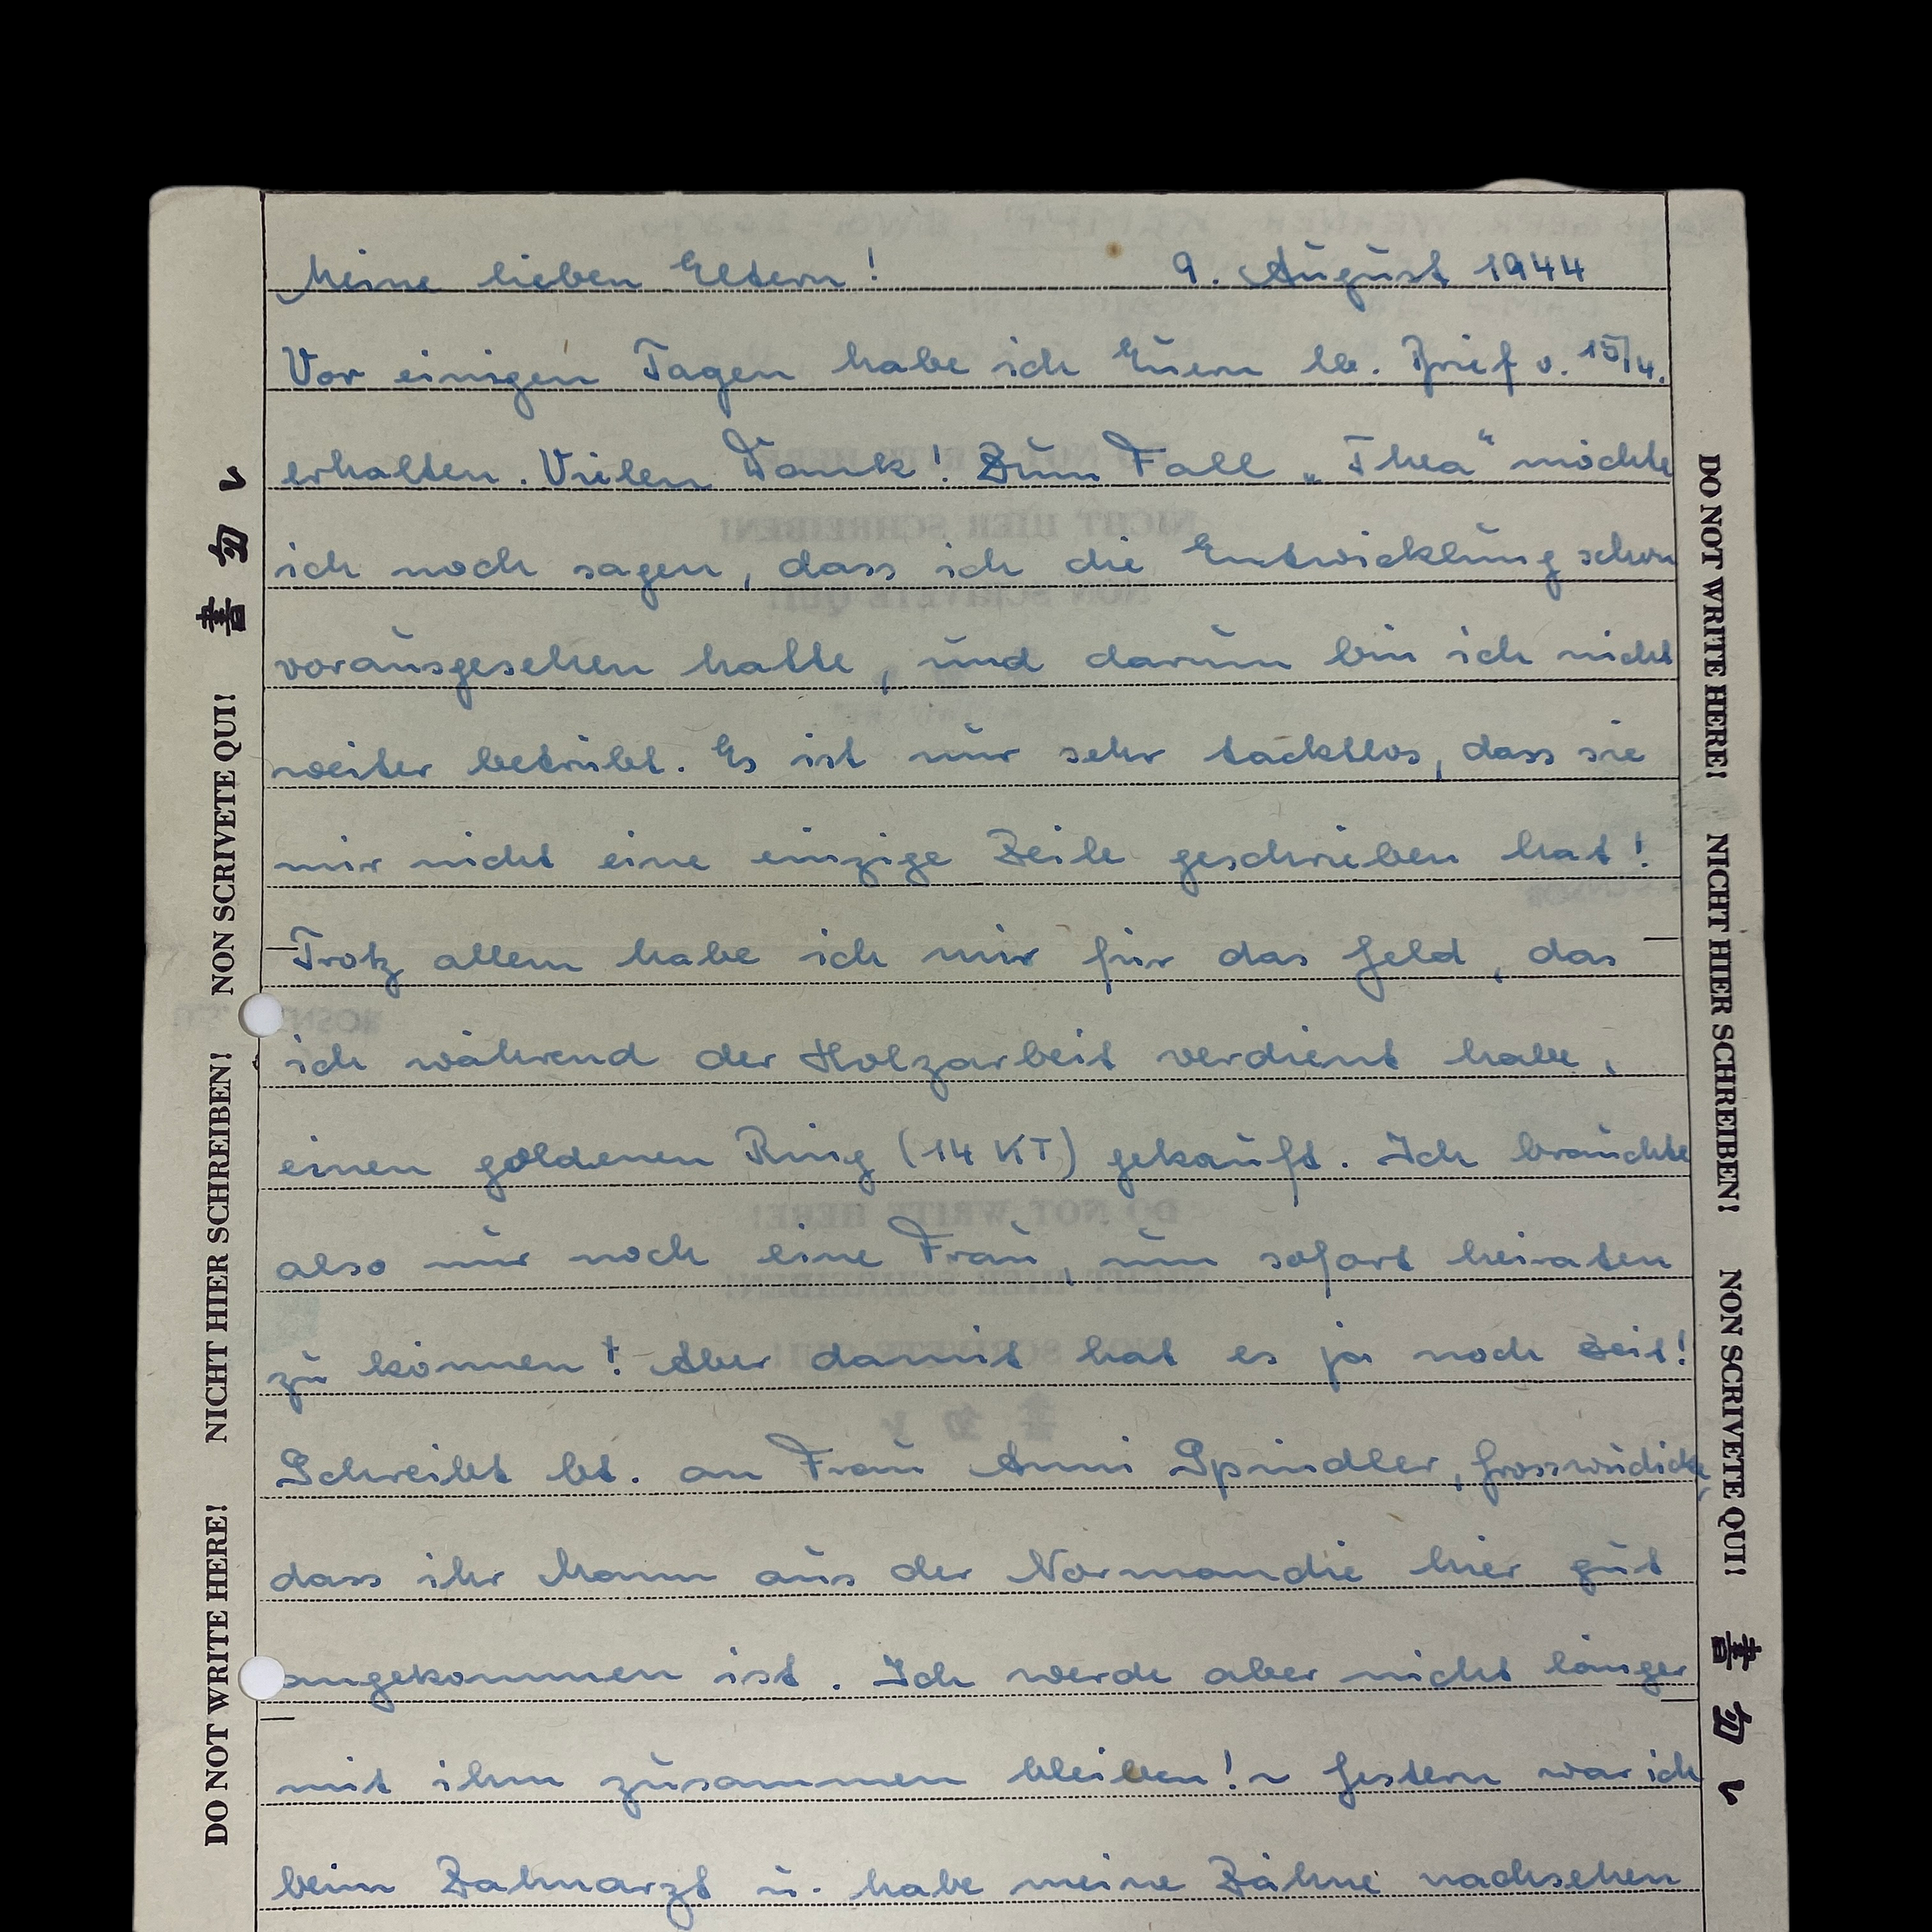 Meine lieben Eltern! 9. August 1944
Vor einigen Tagen habe ich Euern lb. Brief v. 15/4.
erhalten. Vielen Dank! Zum Fall „Thea“ möchte
ich noch sagen, dass ich die Entwicklung schon
vorausgesehen hatte, und darum bin ich nicht
weiter betrübt. Es ist nur sehr tacktlos, dass sie
mir nicht eine einzige Zeile geschrieben hat!
Trotz allem habe ich mir für das Geld, das
ich während der Holzarbeit verdient habe,
einen goldenen Ring (14 KT) gekauft. Ich brauchte
also nur noch eine Frau, um sofort heiraten
zu können! Aber damit hat es ja noch Zeit!
Schreibt bt. an Frau Anni Spindler, Grosswudicke,
dass ihr Mann aus der Normandie hier gut
angekommen ist. Ich werde aber nicht länger
mit ihm zusammen bleiben! ~ Gestern war ich
beim Zahnarzt u. habe meine Zähne nachsehen
DO NOT WRITE HERE! NICHT HIER SCHREIBEN! NON SCRIVETE QUI! 書勿レ
DO NOT WRITE HERE! NICHT HIER SCHREIBEN! NON SCRIVETE QUI! 書勿レ